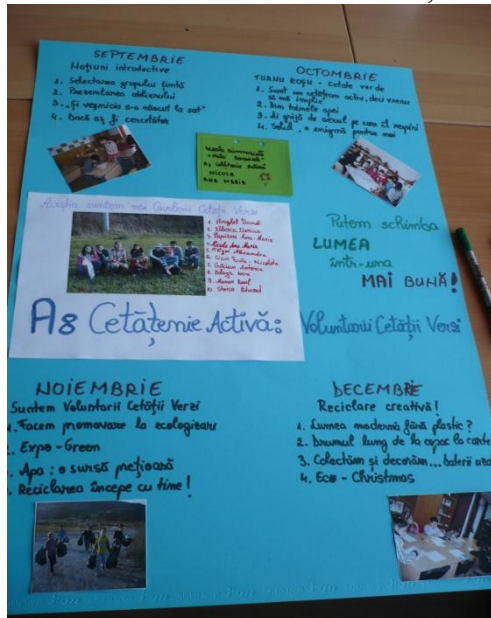 SEPTEMBRIE
Noțiuni introductive
1. Selectarea grupului țintă
2. Prezentarea atelierului
3. „Și veșnicia s-a născut la sat"
4. Dacă aș fi cercetător
OCTOMBRIE
TURNU ROȘU - Cetate verde
1. Sunt un cetățean activ, deci vreau
să mă implic"
2. Din tainele apei
3. Ai grijă de aerul pe care îl respiri
4. Solul, o enigmă pentru noi
NICULA
ANA MARIA
Aceștia suntem noi Cavalerii Cetății Verzi
Putem schimba
LUMEA
într-una
MAI BUNĂ!
A8 Cetățenie Activă:
Voluntarii Cetății Verzi
NOIEMBRIE
Suntem Voluntarii Cetății Verzi
1. Facem promovare la ecologizare
2. Expo - Green
3. Apa: o sursă prețioasă
Reciclarea începe cu tine!
DECEMBRIE
Reciclare creativă!
1. Lumea modernă fără plastic?
2. Drumul lung de la copac la carte
3. Colectăm și decorăm... baterii uza
4. Eco - Christmas